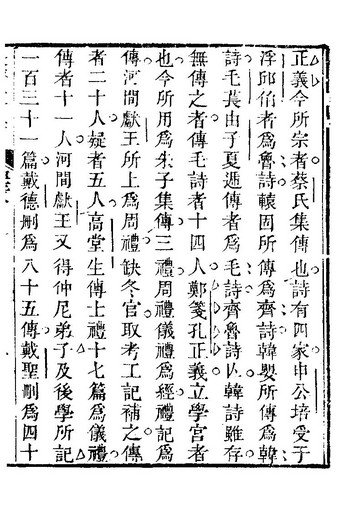 正義今所宗者蔡氏集傳也詩有四家申公培受于
浮邱伯者爲魯詩轅固所傳爲齊詩韓嬰所傳爲韓
詩毛萇由子夏遞傳者爲毛詩齊魯詩亾韓詩雖存
無傳之者傳毛詩者十四人鄭箋孔正義立學宮者
也今所用爲朱子集傳三禮周禮儀禮爲經禮記爲
傳河間獻王所上爲周禮缺冬官取考工記補之傳
者二十人疑者五人高堂生傳士禮十七篇爲儀禮
傳者十一人河間獻王又得仲尼弟子及後學所記
一百三十一篇戴德刪爲八十五傳戴聖刪爲四十